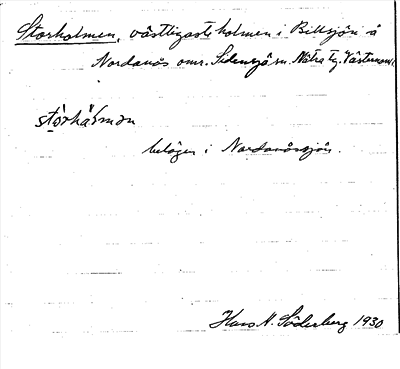 Storholmen, västligaste holmen i Billsjön å
Nordanås omr. Sidensjö sn. Nätra tg. Västernorrl.
stórhålmən
belägen i Nordanåssjön.
Hans N. Söderberg 1930